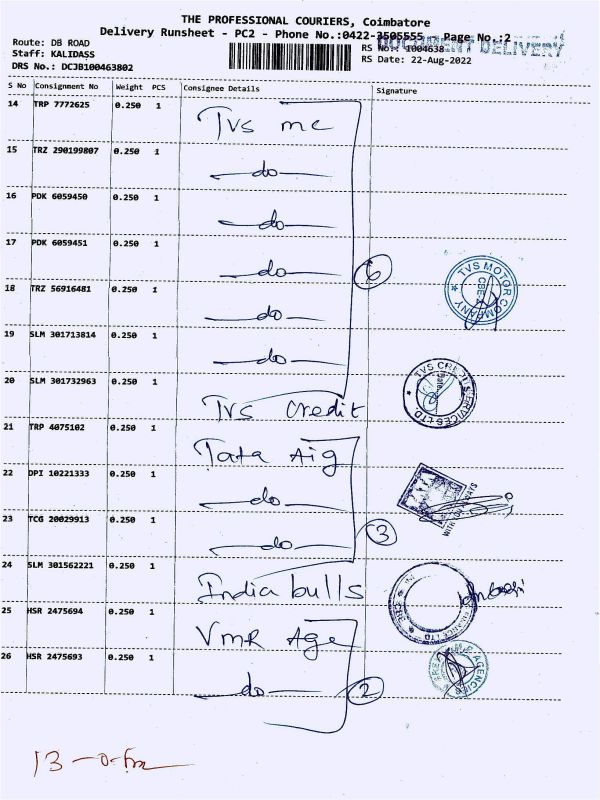 THE PROFESSIONAL COURIERS, Coimbatore
Delivery Runsheet - PC2 - Phone No.:0422-3505555 Page No.:2
DOCUMENT DELIVERY
Route: DB ROAD
Staff: KALIDASS
DRS No.: DCJB100463802
RS No.: 1004638
RS Date: 22-Aug-2022
S No Consignment No Weight PCS Consignee Details Signature
14 TRP 7772625 0.250 1 TVS mc
15 TRZ 290199807 0.250 1 do
16 PDK 6059450 0.250 1 do
17 PDK 6059451 0.250 1 do
6
TVS MOTOR COMPANY
CBE
18 TRZ 56916481 0.250 1 do
19 SLM 301713814 0.250 1 do
20 SLM 301732963 0.250 1 TVS Credit
TVS CREDIT SERVICES LTD.
21 TRP 4075102 0.250 1 Tata Aig
22 DPI 10221333 0.250 1 do
23 TCG 20029913 0.250 1 do
3
WITH
24 SLM 301562221 0.250 1 India bulls
25 HSR 2475694 0.250 1 VMR Age
26 HSR 2475693 0.250 1 do
2
AGENCIES
13